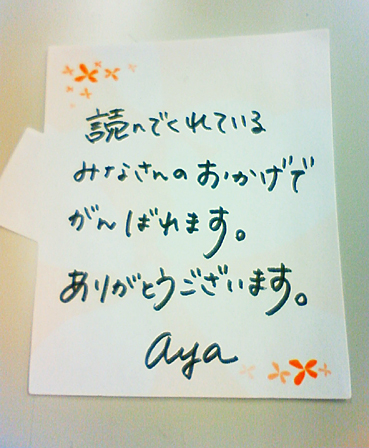 読んでくれている
みなさんのおかげで
がんばれます。
ありがとうございます。
aya